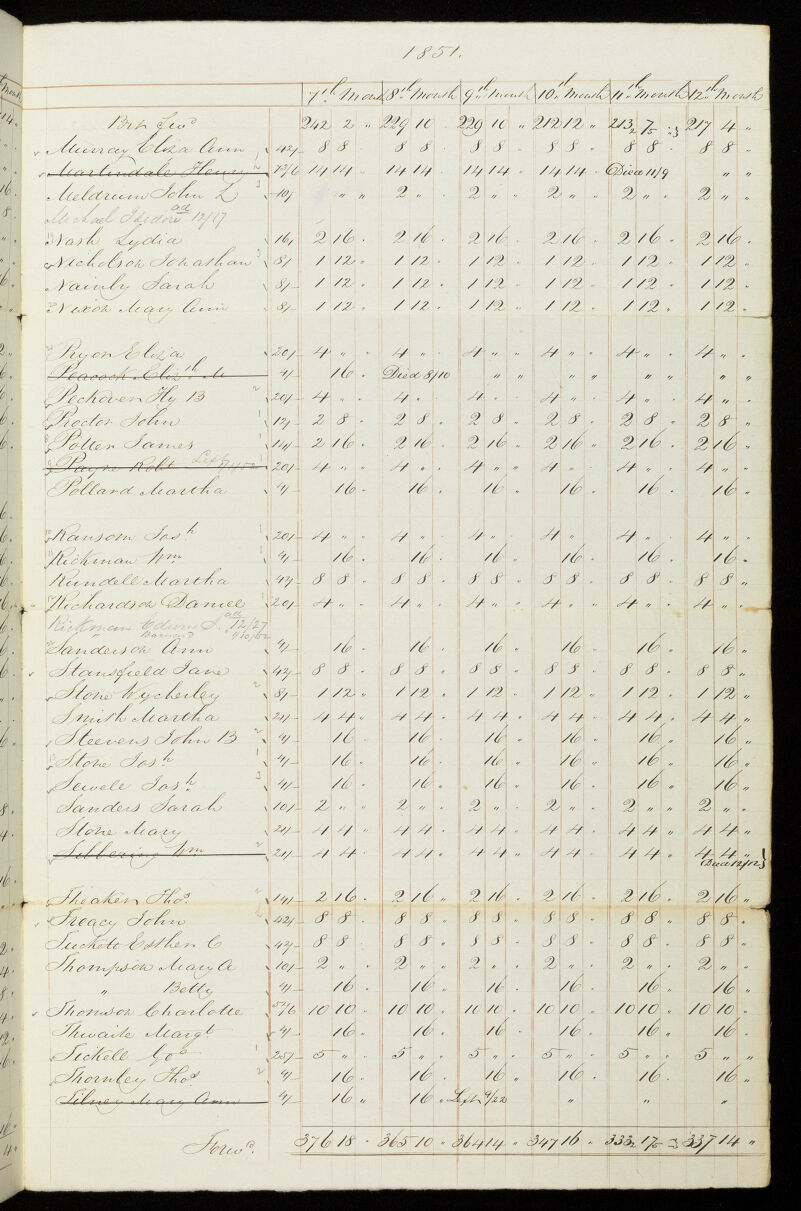 1851.
7th Month 8th Month 9th Month 10th Month 11th Month 12th Month
Brt Ford 242 2 " 229 10 . 229 10 " 212 12 " 213 217 4 "
Murray Eliza Ann 42/- 8 8 . 8 8 . 8 8 . 8 8 . 8 8 . 8 8 .
Martindale Henry 73/6 14 14 " 14 14 . 14 14 " 14 14 . Died 11/9 " "
Meldrum John L 10/- " " 2 " . 2 " . 2 " . 2 " . 2 " .
Michael Isidore ad 12/17
Nash Lydia 14/- 2 16 . 2 16 . 2 16 . 2 16 . 2 16 . 2 16 .
Nicholson Jonathan 8/- 1 12 . 1 12 . 1 12 . 1 12 . 1 12 . 1 12 .
Nainby Sarah 8/- 1 12 . 1 12 . 1 12 . 1 12 . 1 12 . 1 12 .
Nixon Mary Ann 8/- 1 12 . 1 12 . 1 12 . 1 12 . 1 12 . 1 12 .
Pryor Eliza 20/- 4 " " 4 " . 4 " " 4 " " 4 " . 4 " .
Peacock Elizth M 4/- 16 . Died 8/10 " " " " " " " "
Peckover Hy B 20/- 4 " . 4 " . 4 " . 4 " . 4 " . 4 " .
Proctor John 12/- 2 8 . 2 8 . 2 8 . 2 8 . 2 8 . 2 8 "
Potter James 14/- 2 16 . 2 16 . 2 16 . 2 16 " 2 16 . 2 16 .
Payne Robt Left 20/- 4 " " 4 " . 4 " " 4 " . 4 " . 4 " "
Pollard Martha 4/- 16 . 16 . 16 . 16 . 16 . 16 "
Ransom Josh 20/- 4 " . 4 " . 4 " . 4 " . 4 " . 4 " "
Rickman Wm 4/- 16 . 16 . 16 . 16 . 16 . 16 .
Rundell Martha 42/- 8 8 . 8 8 . 8 8 . 8 8 . 8 8 . 8 8 "
Richardson Daniel 20/- 4 " . 4 " . 4 " . 4 " . 4 " . 4 " .
Rickman Edeons S. ad 12/27
Sanderson Ann 4/- 16 . 16 . 16 . 16 . 16 . 16 "
Stansfield Jane 42/- 8 8 . 8 8 . 8 8 . 8 8 . 8 8 . 8 8 "
Stone Wycherley 8/- 1 12 " 1 12 . 1 12 . 1 12 " 1 12 . 1 12 "
Smith Martha 21/- 4 4 . 4 4 . 4 4 . 4 4 . 4 4 . 4 4 "
Steevens John B 4/- 16 . 16 . 16 . 16 . 16 . 16 "
Stone Josh 4/- 16 . 16 . 16 . 16 . 16 . 16 "
Sewell Josh 4/- 16 . 16 " 16 . 16 . 16 . 16 "
Sanders Sarah 10/- 2 " " 2 " . 2 " . 2 " . 2 " " 2 " .
Stone Mary 21/- 4 4 " 4 4 . 4 4 . 4 4 . 4 4 " 4 4 "
Sibbering Wm 21/- 4 4 . 4 4 . 4 4 . 4 4 . 4 4 . 4 4 "
(Died 12/12)
Theaker Thos 14/- 2 16 . 2 16 " 2 16 . 2 16 . 2 16 . 2 16 "
Treacy John 42/- 8 8 . 8 8 " 8 8 . 8 8 . 8 8 " 8 8 .
Tuckett Esther C 42/- 8 8 . 8 8 . 8 8 . 8 8 . 8 8 . 8 8 "
Thompson Mary A 10/- 2 " . 2 " " 2 " . 2 " . 2 " . 2 " "
" Betty 4/- 16 . 16 . 16 . 16 . 16 . 16 "
Thomson Charlotte 52/6 10 10 . 10 10 . 10 10 . 10 10 . 10 10 . 10 10 .
Thwaite Margt 4/- 16 . 16 . 16 . 16 . 16 . 16 .
Tickell Geo 25/- 5 " . 5 " " 5 " . 5 " . 5 " " 5 " "
Thornley Thos 4/- 16 . 16 . 16 " 16 . 16 . 16 "
Tilney Mary Ann 4/- 16 " 16 " Left 9/22 " " "
Forwd. 376 18 . 365 10 . 364 14 " 347 16 . 333 337 14 "